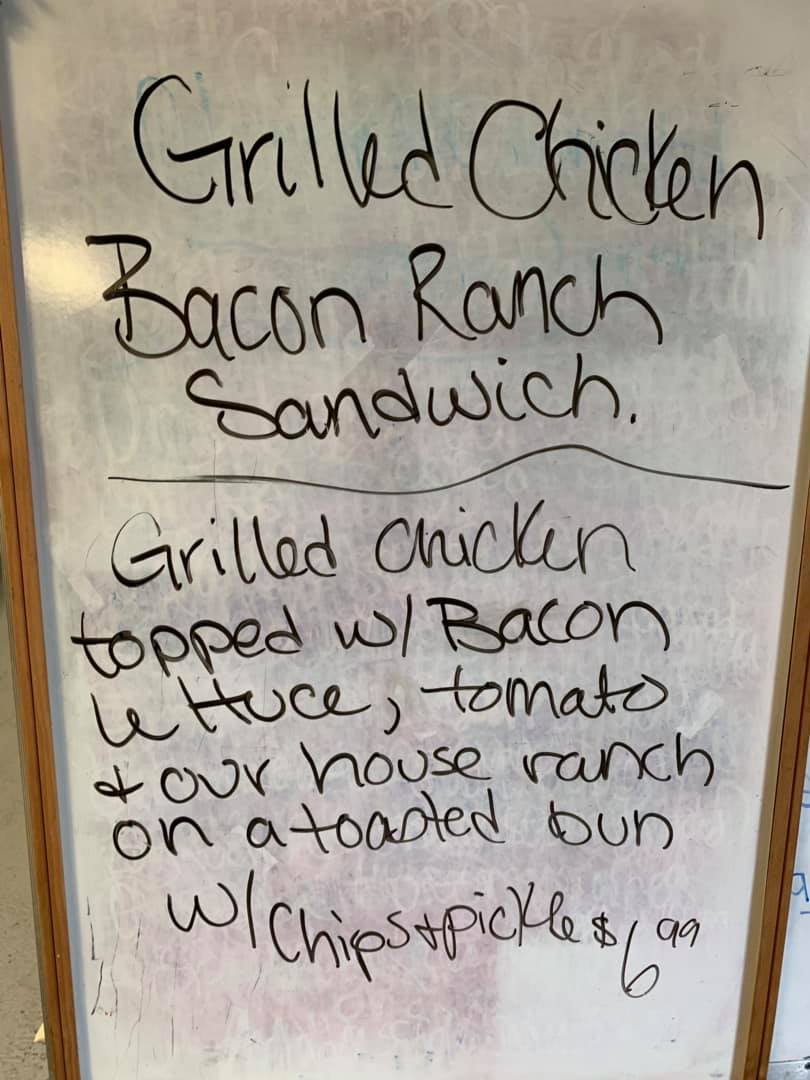 Grilled Chicken
Bacon Ranch
Sandwich.
Grilled chicken
topped w/ Bacon
lettuce, tomato
& our house ranch
on a toasted bun
w/ Chips & pickle $6.99